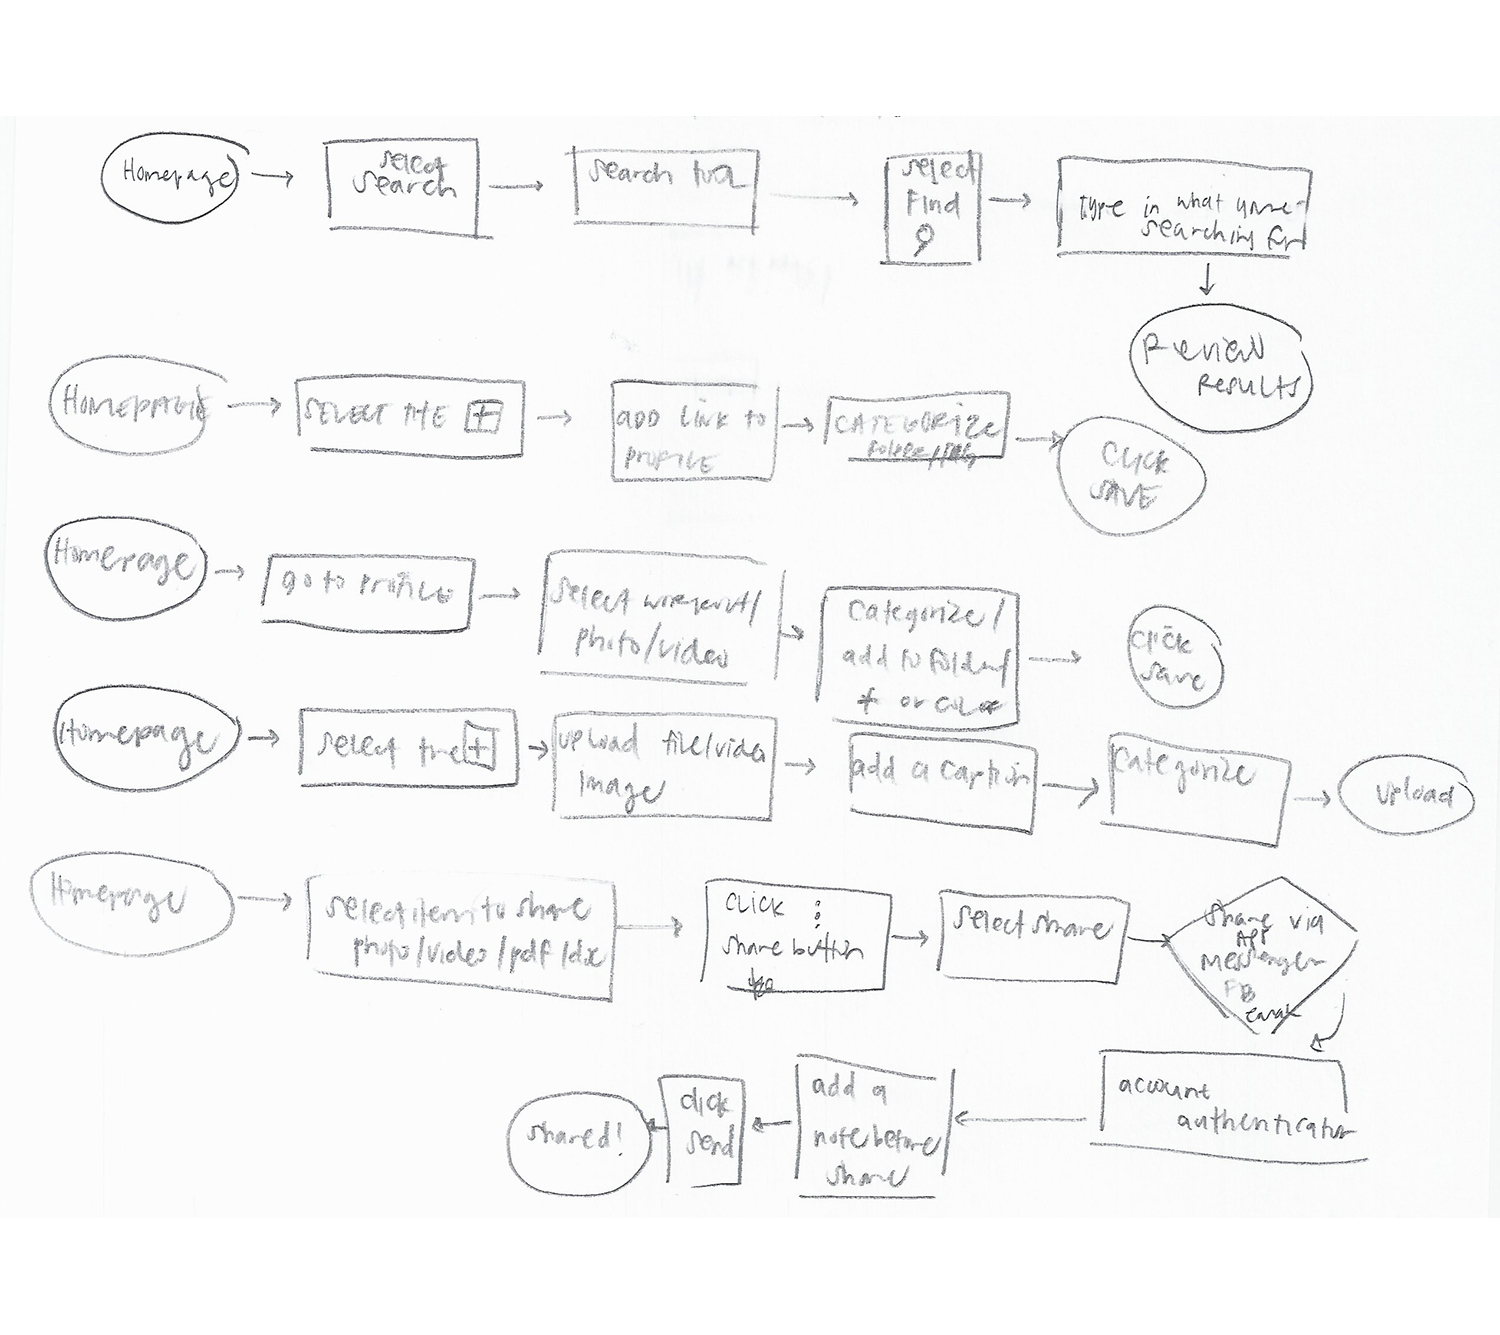 Homepage
select
search
search tool
select
find
type in what your
searching for
Review
Results
HOMEPAGE
SELECT THE +
ADD LINK TO
PROFILE
CATEGORIZE
CLICK
SAVE
Homepage
go to profile
select workout/
photo/video
categorize/
add to folder/
* or color
click
save
Homepage
select the +
upload file/video
image
add a caption
categorize
upload
Homepage
select item to share
photo/video/pdf/
click ⋮
share button
select share
share via
APP
messenger
FB
email
account
authenticator
add a
note before
share
click
send
shared!